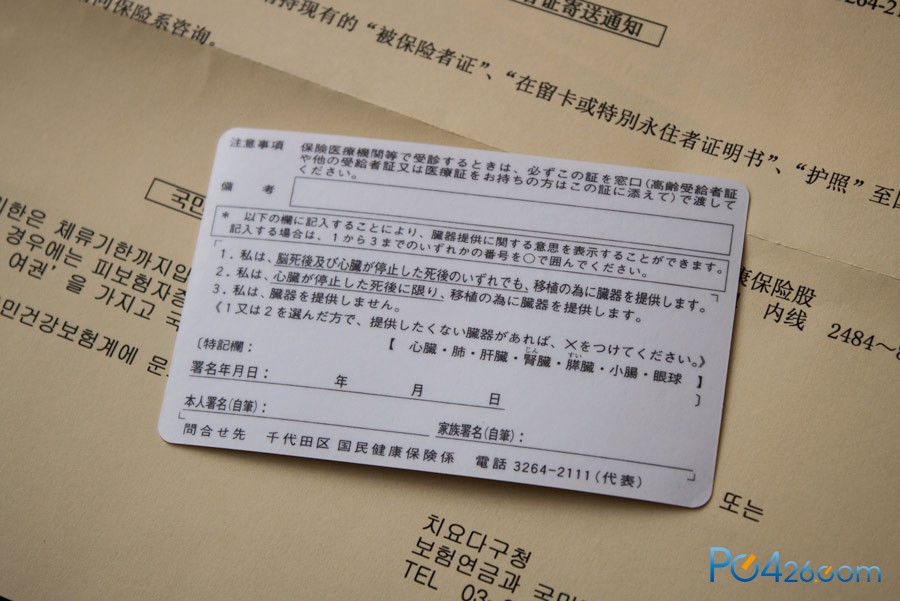 证寄送通知
3264-21
持现有的“被保险者证”、“在留卡或特別永住者证明书”、“护照”至
同保险系咨询。
注意事項 保険医療機関等で受診するときは、必ずこの証を窓口(高齢受給者証
や他の受給者証又は医療証をお持ちの方はこの証に添えて)で渡して
ください。
備 考
* 以下の欄に記入することにより、臓器提供に関する意思を表示することができます。
記入する場合は、1から3までのいずれかの番号を○で囲んでください。
1.私は、脳死後及び心臓が停止した死後のいずれでも、移植の為に臓器を提供します。
2.私は、心臓が停止した死後に限り、移植の為に臓器を提供します。
3.私は、臓器を提供しません。
《1又は2を選んだ方で、提供したくない臓器があれば、×をつけてください。》
【 心臓・肺・肝臓・腎臓・膵臓・小腸・眼球 】
じん すい
〔特記欄: 〕
署名年月日: 年 月 日
本人署名(自筆): 家族署名(自筆):
問合せ先 千代田区 国民健康保険係 電話 3264-2111(代表)
국민
기한은 체류기한까지입
경우에는 피보험자증
여권’을 가지고 국
민건강보험계에 문
康保险股
内线 2484～8
또는
치요다구청
보험연금과 국민
TEL 03-
PC426.com